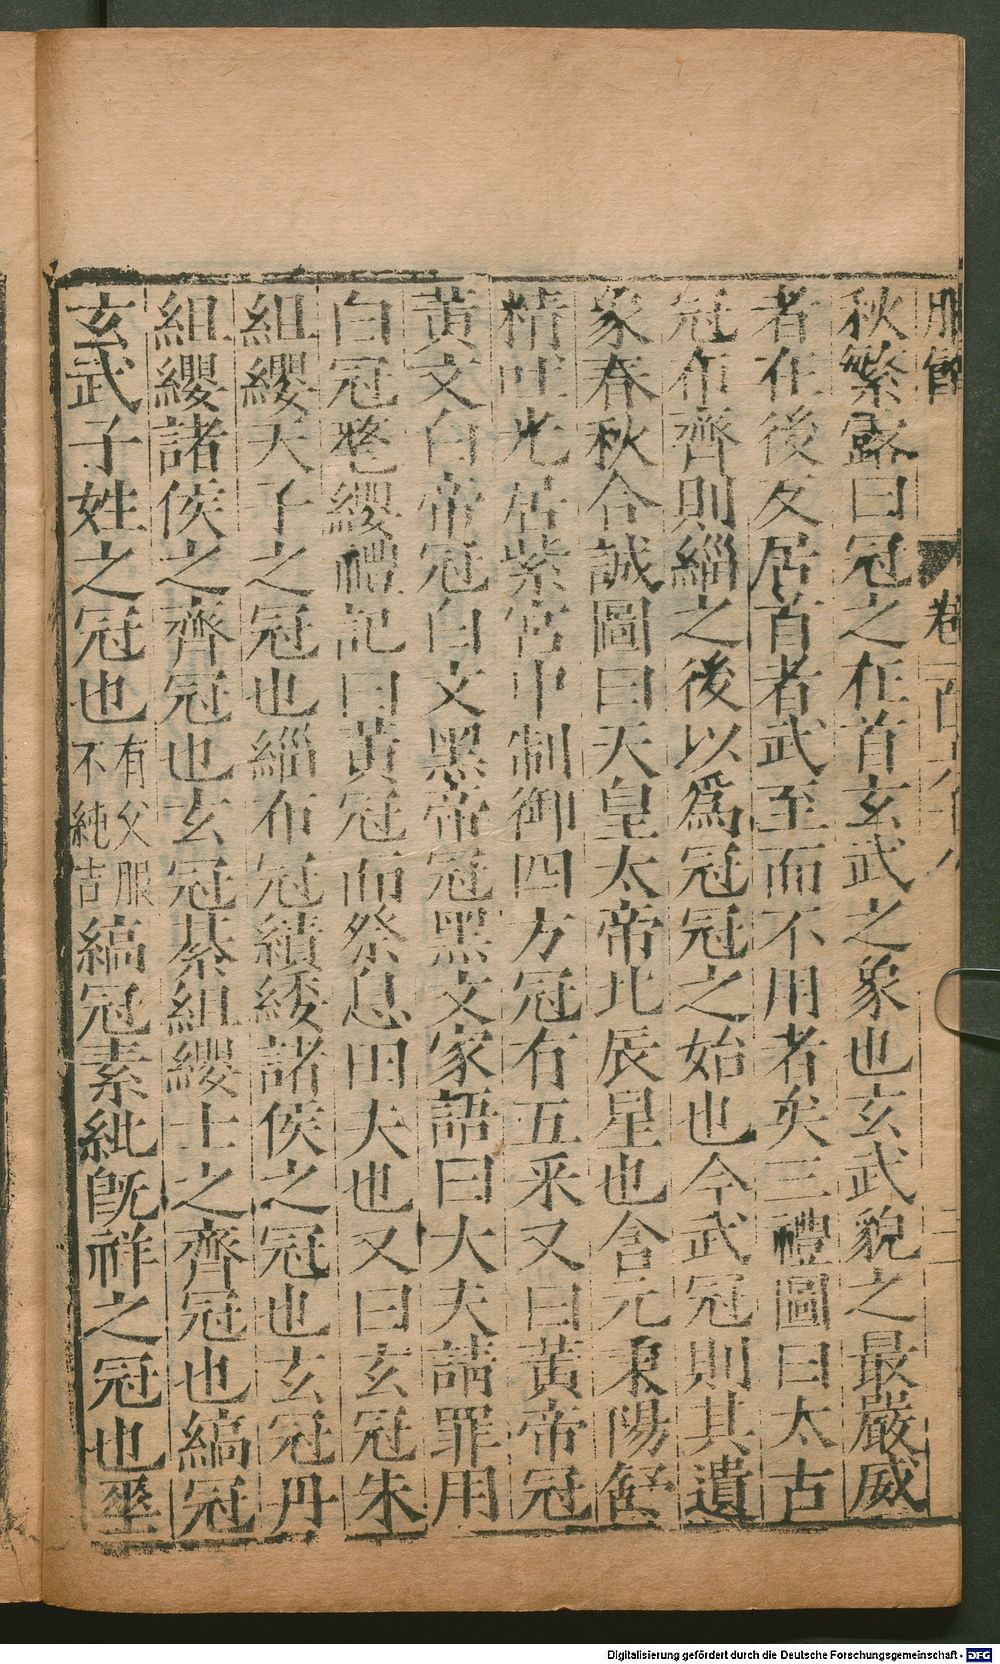 秋繁露曰冠之在首玄武之象也玄武貌之最嚴威
者在後反居首者武至而不用者矣三禮圖曰太古
冠布齊則緇之後以爲冠冠之始也今武冠則其遺
象春秋合誠圖曰天皇太帝北辰星也含元秉陽舒
精吐光居紫宮中制御四方冠有五采又曰黃帝冠
黃文白帝冠白文黑帝冠黑文家語曰大夫請罪用
白冠氂纓禮記曰黃冠而祭息田夫也又曰玄冠朱
組纓天子之冠也緇布冠繢緌諸侯之冠也玄冠丹
組纓諸侯之齊冠也玄冠綦組纓士之齊冠也縞冠
玄武子姓之冠也有父服不純吉縞冠素紕旣祥之冠也垂
Digitalisierung gefördert durch die Deutsche Forschungsgemeinschaft - DFG